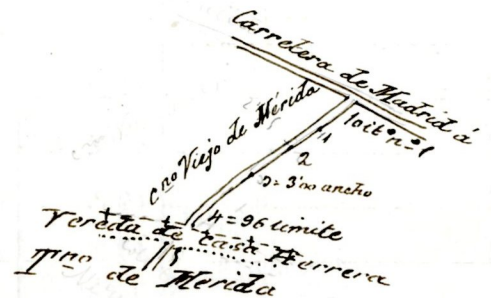 Carretera de Madrid á
Cno Viejo de Mérida
1
2
3 = 3'00 ancho
4 = 96 límite
Vereda de Casa Herrera
Tno de Mérida